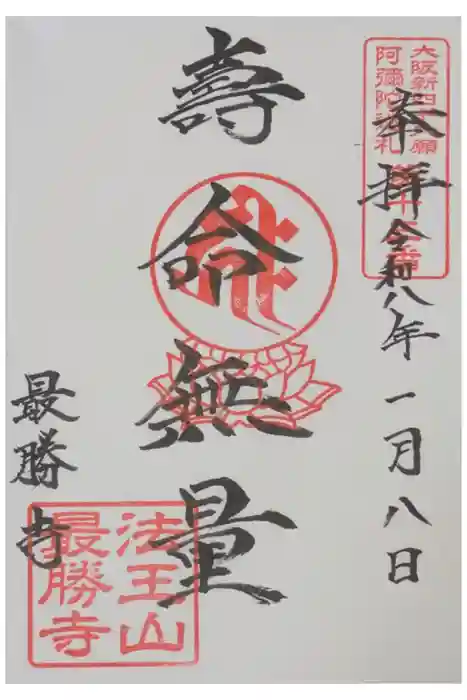 奉拝 令和八年一月八日
大阪新四十八願
阿彌陀巡礼
壽命無量
最勝寺
法王山
最勝寺